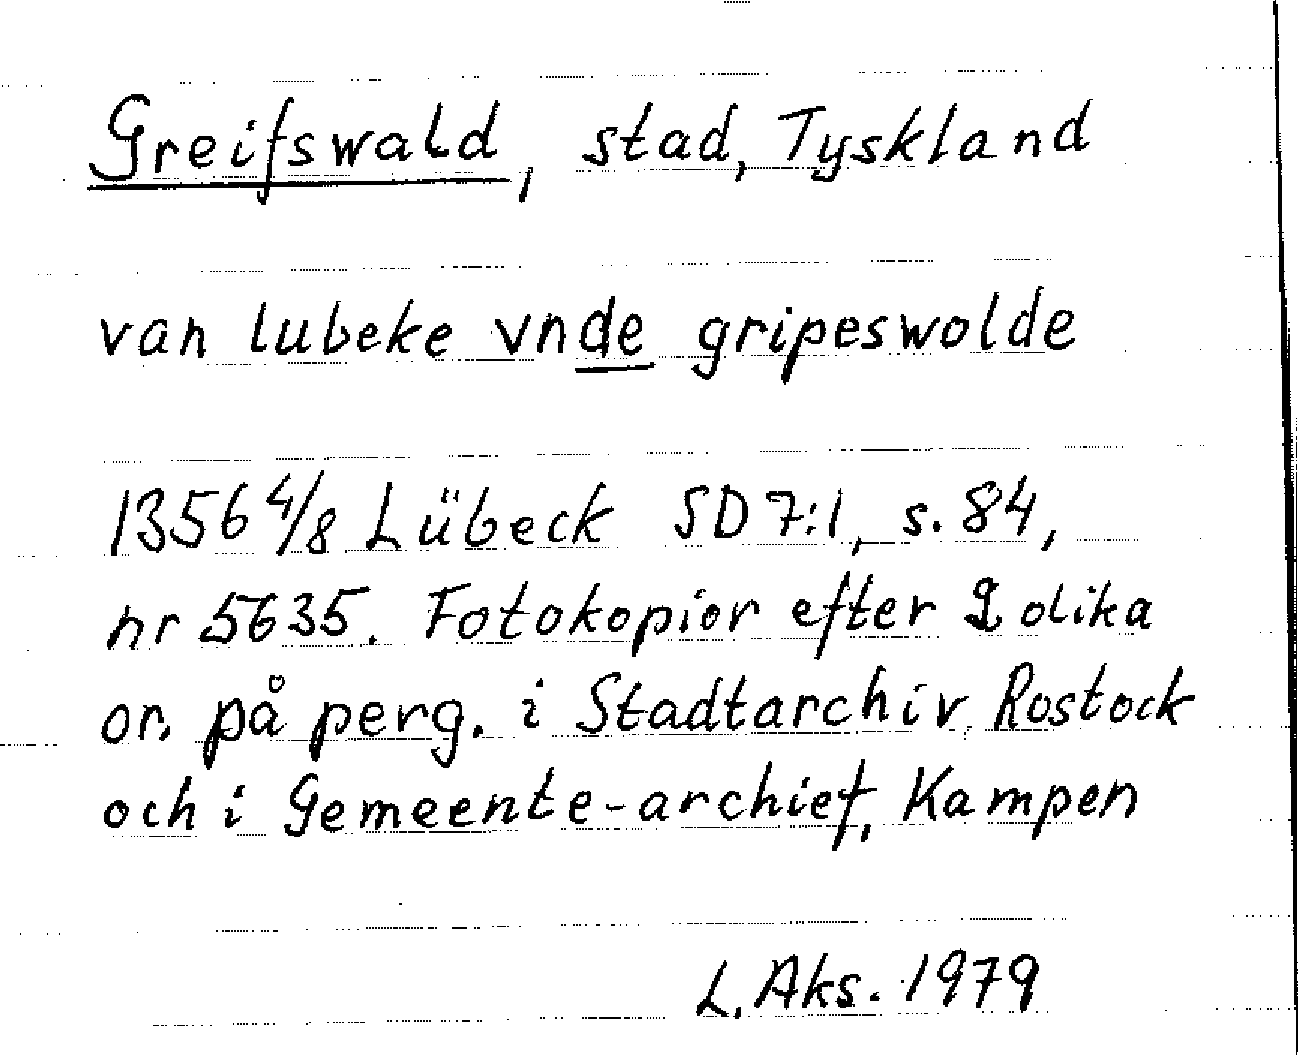 Greifswald, stad, Tyskland
van lubeke vnde gripeswolde
1356 4/8 Lübeck SD 7:1, s. 84,
nr 5635. Fotokopior efter 2 olika
or. på perg. i Stadtarchiv, Rostock
och i Gemeente-archief, Kampen
L. Aks. 1979